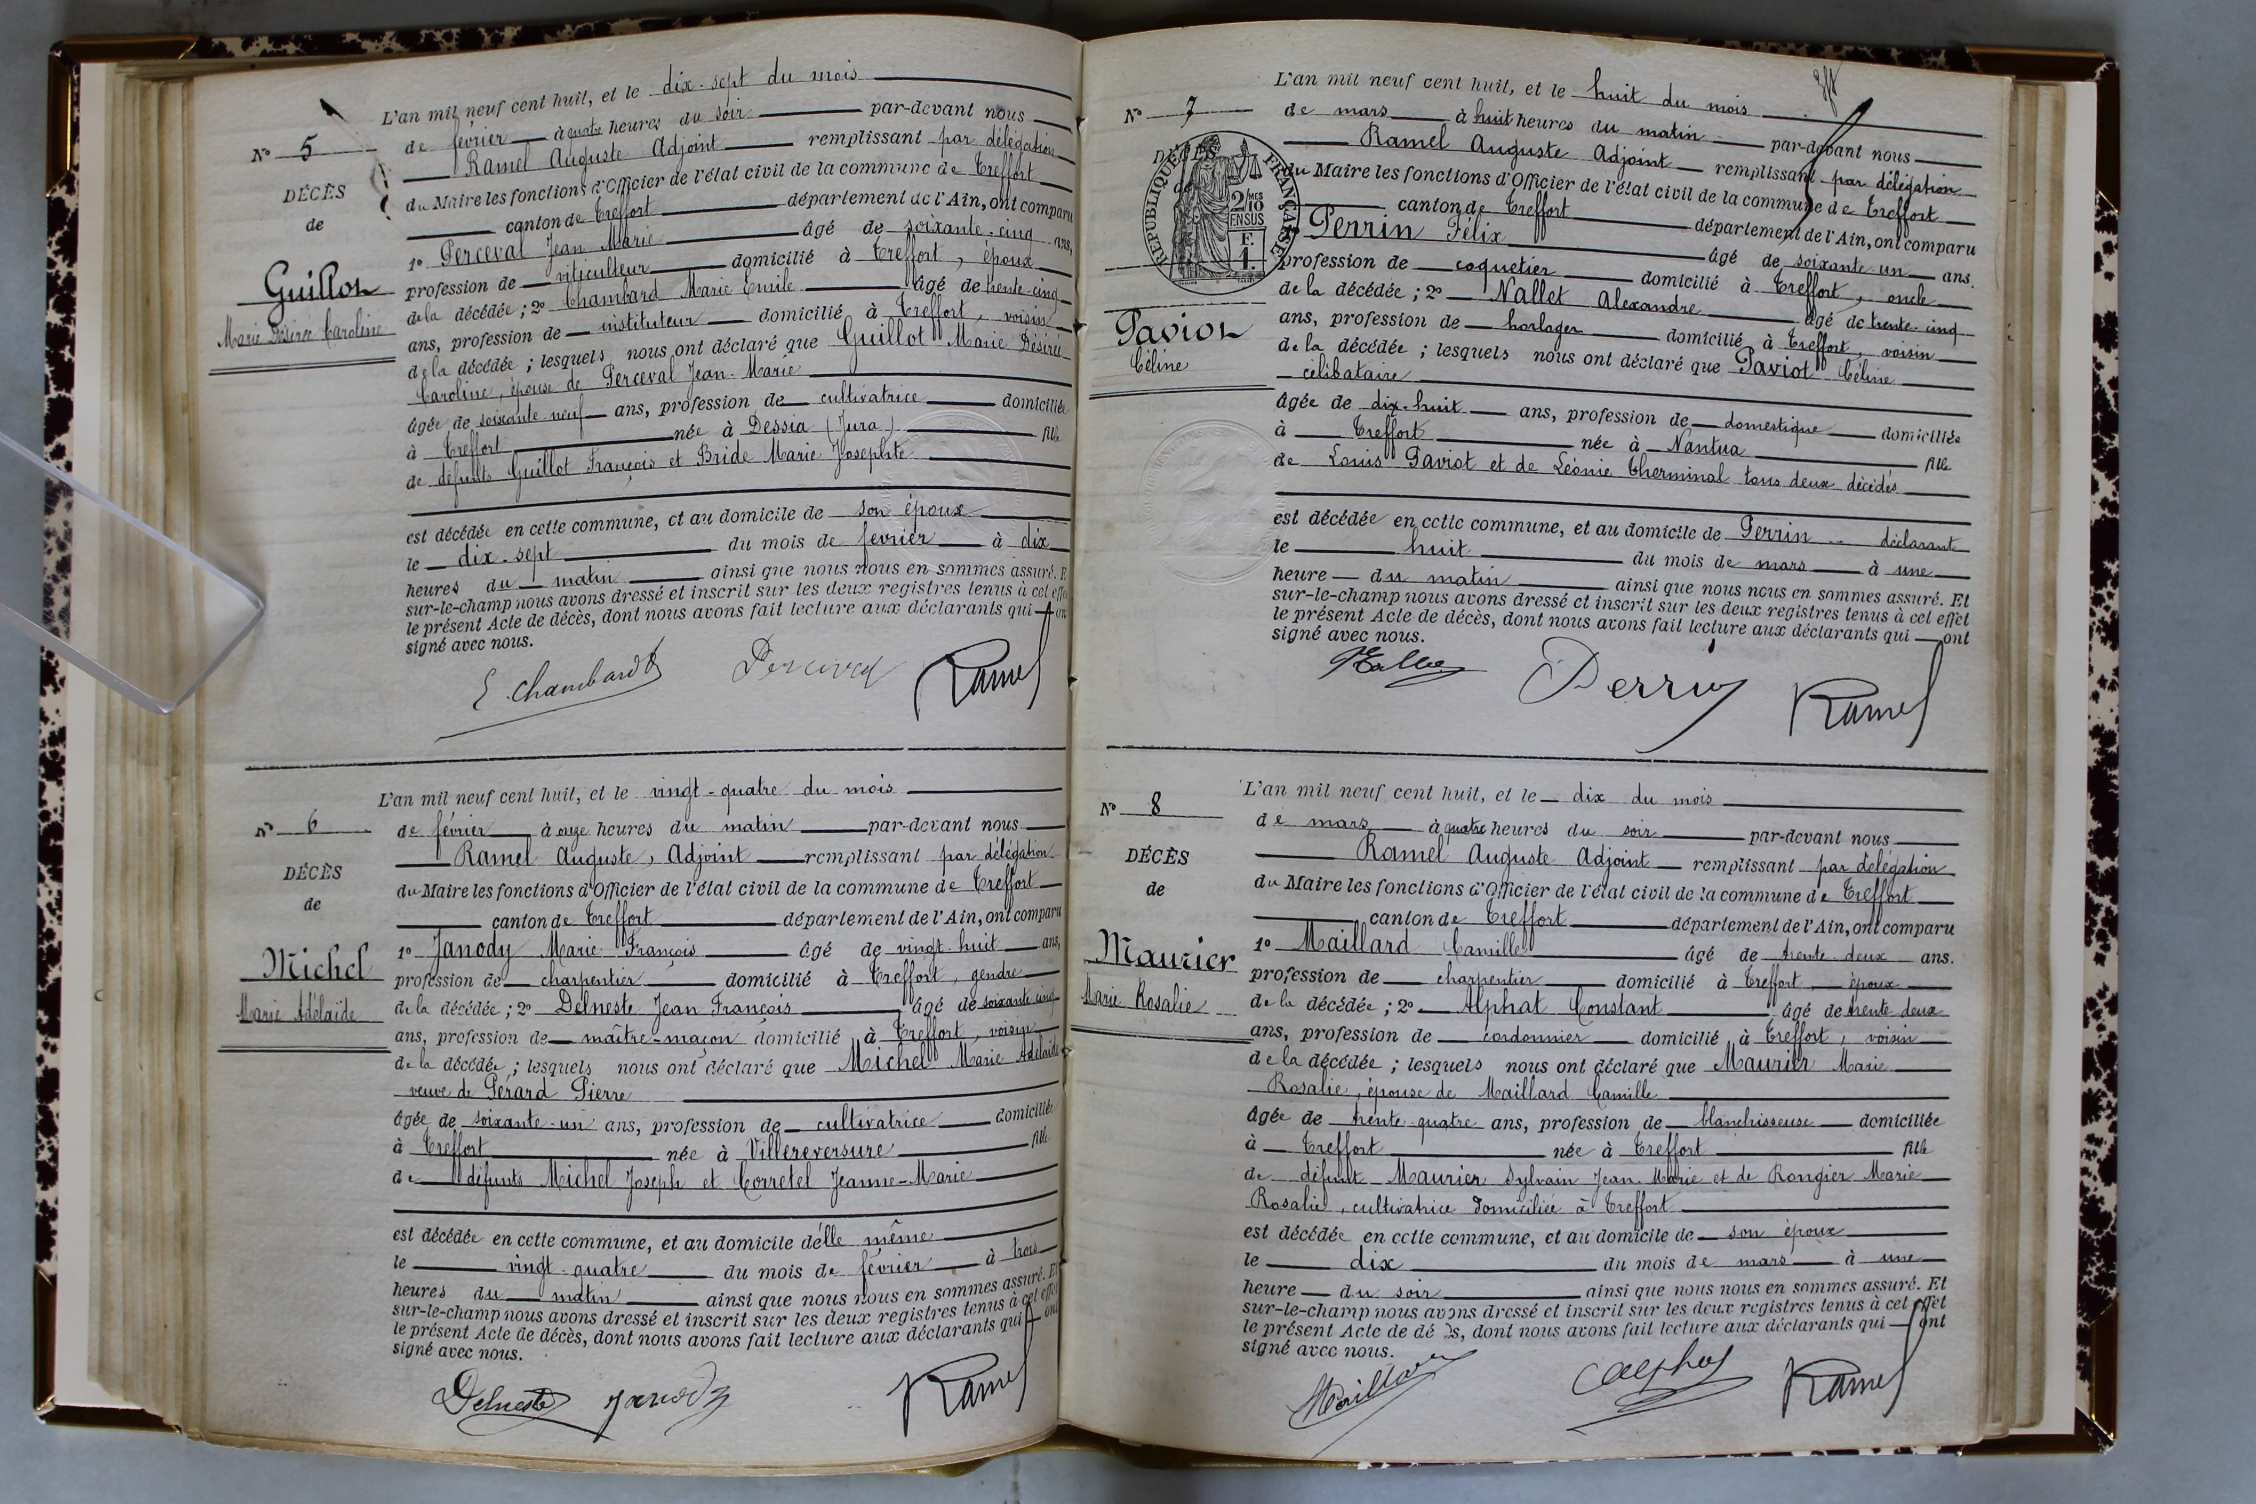 L'an mil neuf cent huit, et le dix-sept du mois
de février à quatre heures du soir par-devant nous
Ramel Auguste Adjoint remplissant par délégation
du Maire les fonctions d'Officier de l'état civil de la commune de Treffort
canton de Treffort département de l'Ain, ont comparu
1º Perceval Jean Marie âgé de soixante-cinq ans,
profession de viticulteur domicilié à Treffort, époux
de la décédée ; 2º Chambard Marie Emile âgé de trente-cinq
ans, profession de instituteur domicilié à Treffort, voisin
de la décédée ; lesquels nous ont déclaré que Guillot Marie Désirée
Caroline, épouse de Perceval Jean-Marie
âgée de soixante neuf ans, profession de cultivatrice domiciliée
à Treffort née à Dessia (Jura) fille
de défunts Guillot François et Bride Marie Josephte
est décédée en cette commune, et au domicile de son époux
le dix-sept du mois de février à dix
heures du matin ainsi que nous nous en sommes assuré. Et
sur-le-champ nous avons dressé et inscrit sur les deux registres tenus à cet effet
le présent Acte de décès, dont nous avons fait lecture aux déclarants qui ont
signé avec nous.
Nº 5
DÉCÈS
de
Guillot
Marie Désirée Caroline
E Chambard Perceval Ramel
L'an mil neuf cent huit, et le vingt-quatre du mois
de février à onze heures du matin par-devant nous
Ramel Auguste, Adjoint remplissant par délégation
du Maire les fonctions d'Officier de l'état civil de la commune de Treffort
canton de Treffort département de l'Ain, ont comparu
1º Janody Marie François âgé de vingt-huit ans,
profession de charpentier domicilié à Treffort, gendre
de la décédée ; 2º Delneste Jean François âgé de soixante cinq
ans, profession de maître-maçon domicilié à Treffort, voisin
de la décédée ; lesquels nous ont déclaré que Michel Marie Adélaïde
veuve de Pérard Pierre
âgée de soixante-un ans, profession de cultivatrice domiciliée
à Treffort née à Villereversure fille
de défunts Michel Joseph et Corretel Jeanne-Marie
est décédée en cette commune, et au domicile d'elle même
le vingt-quatre du mois de février à trois
heures du matin ainsi que nous nous en sommes assuré. Et
sur-le-champ nous avons dressé et inscrit sur les deux registres tenus à cet effet
le présent Acte de décès, dont nous avons fait lecture aux déclarants qui ont
signé avec nous.
Nº 6
DÉCÈS
de
Michel
Marie Adélaïde
Delneste Janody Ramel
L'an mil neuf cent huit, et le huit du mois
de mars à huit heures du matin par-devant nous
Ramel Auguste Adjoint remplissant par délégation
du Maire les fonctions d'Officier de l'état civil de la commune de Treffort
canton de Treffort département de l'Ain, ont comparu
Perrin Félix âgé de soixante-un ans.
profession de coquetier domicilié à Treffort, oncle
de la décédée ; 2º Nallet Alexandre âgé de trente-cinq
ans, profession de horloger domicilié à Treffort, voisin
de la décédée ; lesquels nous ont déclaré que Paviot Céline
célibataire
âgée de dix-huit ans, profession de domestique domiciliée
à Treffort née à Nantua fille
de Louis Paviot et de Léonie Therminal tous deux décédés
est décédée en cette commune, et au domicile de Perrin déclarant
le huit du mois de mars à une
heure du matin ainsi que nous nous en sommes assuré. Et
sur-le-champ nous avons dressé et inscrit sur les deux registres tenus à cet effet
le présent Acte de décès, dont nous avons fait lecture aux déclarants qui ont
signé avec nous.
Nº 7
DÉCÈS
RÉPUBLIQUE FRANÇAISE
2/10 MES
EN SUS
F.
1.
Paviot
Céline
Nallet Perrin Ramel
L'an mil neuf cent huit, et le dix du mois
de mars à quatre heures du soir par-devant nous
Ramel Auguste Adjoint remplissant par délégation
du Maire les fonctions d'Officier de l'état civil de la commune de Treffort
canton de Treffort département de l'Ain, ont comparu
1º Maillard Camille âgé de trente-deux ans.
profession de charpentier domicilié à Treffort, époux
de la décédée ; 2º Alphat Constant âgé de trente deux
ans, profession de cordonnier domicilié à Treffort, voisin
de la décédée ; lesquels nous ont déclaré que Maurier Marie
Rosalie, épouse de Maillard Camille
âgée de trente-quatre ans, profession de blanchisseuse domiciliée
à Treffort née à Treffort fille
de défunt Maurier Sylvain Jean Marie et de Rongier Marie
Rosalie, cultivatrice domiciliée à Treffort
est décédée en cette commune, et au domicile de son époux
le dix du mois de mars à une
heure du soir ainsi que nous nous en sommes assuré. Et
sur-le-champ nous avons dressé et inscrit sur les deux registres tenus à cet effet
le présent Acte de décès, dont nous avons fait lecture aux déclarants qui ont
signé avec nous.
Nº 8
DÉCÈS
de
Maurier
Marie Rosalie
Maillard C Alphat Ramel